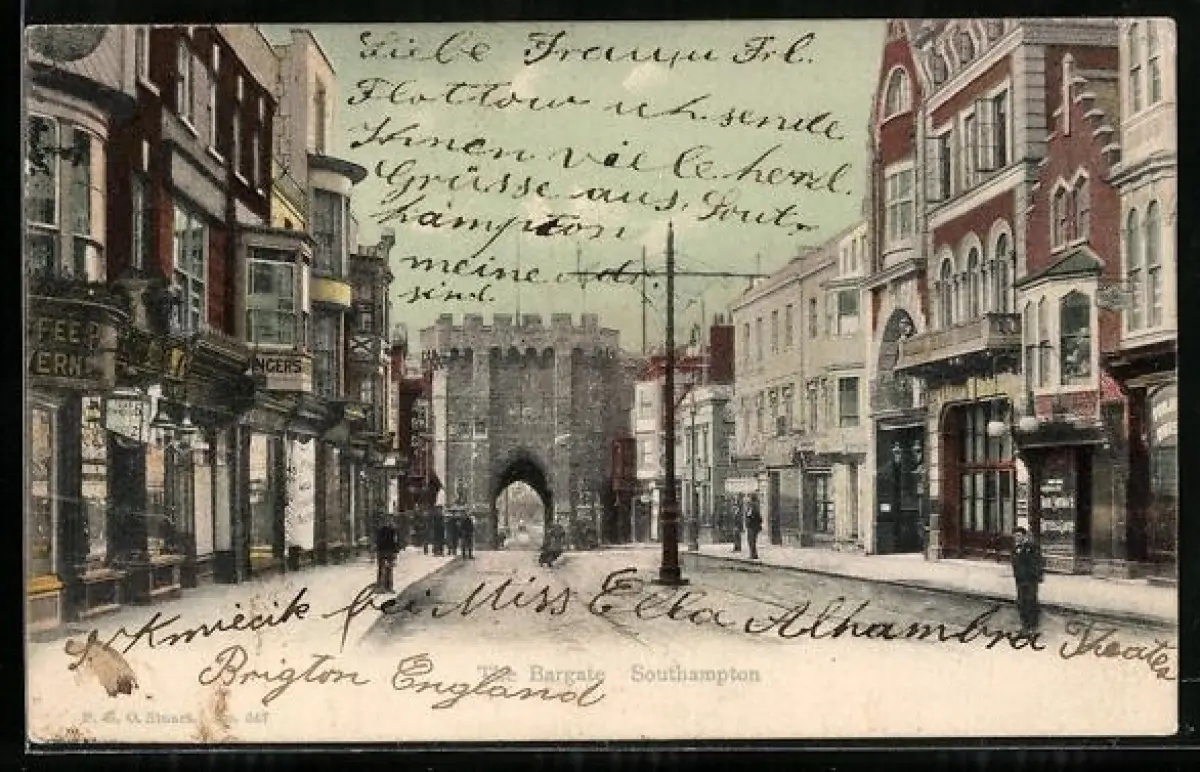 Liebe Frau u Frl.
Flottow ich sende
Ihnen viele herzl.
Grüsse aus Sout-
hampton
meine Adr.
sind.
FEE
ERN
NGERS
Kmiecik bei Miss Ella Alhambra Theater
Brigton England
The Bargate Southampton
F. G. O. Stuart. No. 547